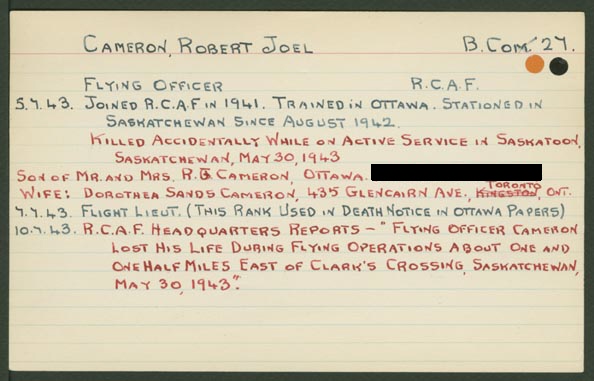 CAMERON, ROBERT JOEL B.COM. '27.
FLYING OFFICER R.C.A.F.
5.7.43. JOINED R.C.A.F IN 1941. TRAINED IN OTTAWA. STATIONED IN
SASKATCHEWAN SINCE AUGUST 1942.
KILLED ACCIDENTALLY WHILE ON ACTIVE SERVICE IN SASKATOON,
SASKATCHEWAN, MAY 30, 1943
SON OF MR. AND MRS. R. CAMERON, OTTAWA.
TORONTO
WIFE: DOROTHEA SANDS CAMERON, 435 GLENCAIRN AVE., KINGSTON, ONT.
7.7.43. FLIGHT LIEUT. (THIS RANK USED IN DEATH NOTICE IN OTTAWA PAPERS)
10.7.43. R.C.A.F. HEADQUARTERS REPORTS – "FLYING OFFICER CAMERON
LOST HIS LIFE DURING FLYING OPERATIONS ABOUT ONE AND
ONE HALF MILES EAST OF CLARK'S CROSSING, SASKATCHEWAN,
MAY 30, 1943".